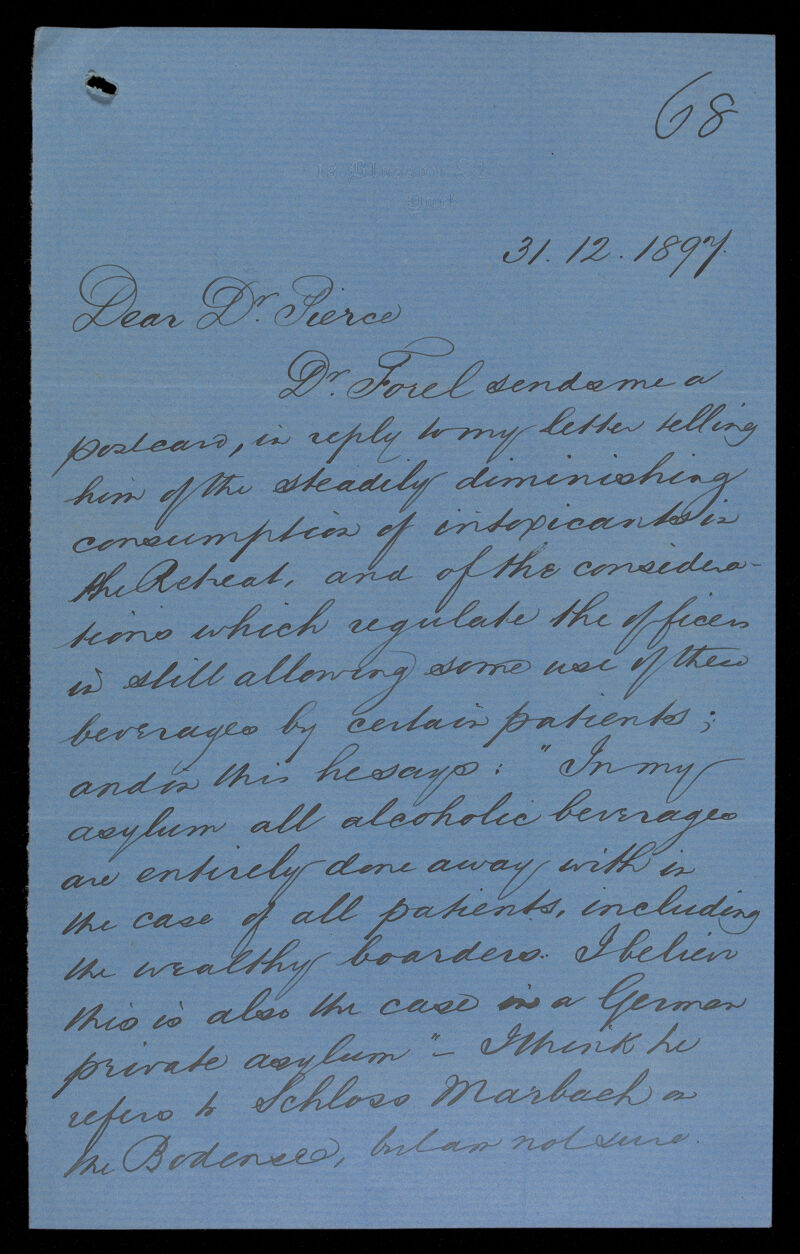 68
York
31.12.1897.
Dear Dr. Pierce
Dr. Forel sends me a
postcard, in reply to my letter telling
him of the steadily diminishing
consumption of intoxicants in
the Retreat, and of the considera-
tions which regulate the officers
in still allowing some use of these
beverages by certain patients;
and in this he says: "In my
asylum all alcoholic beverages
are entirely done away with in
the case of all patients, including
the wealthy boarders. I believe
this is also the case in a German
private asylum" - I think he
refers to Schloss Marbach on
the Bodensee, but am not sure.